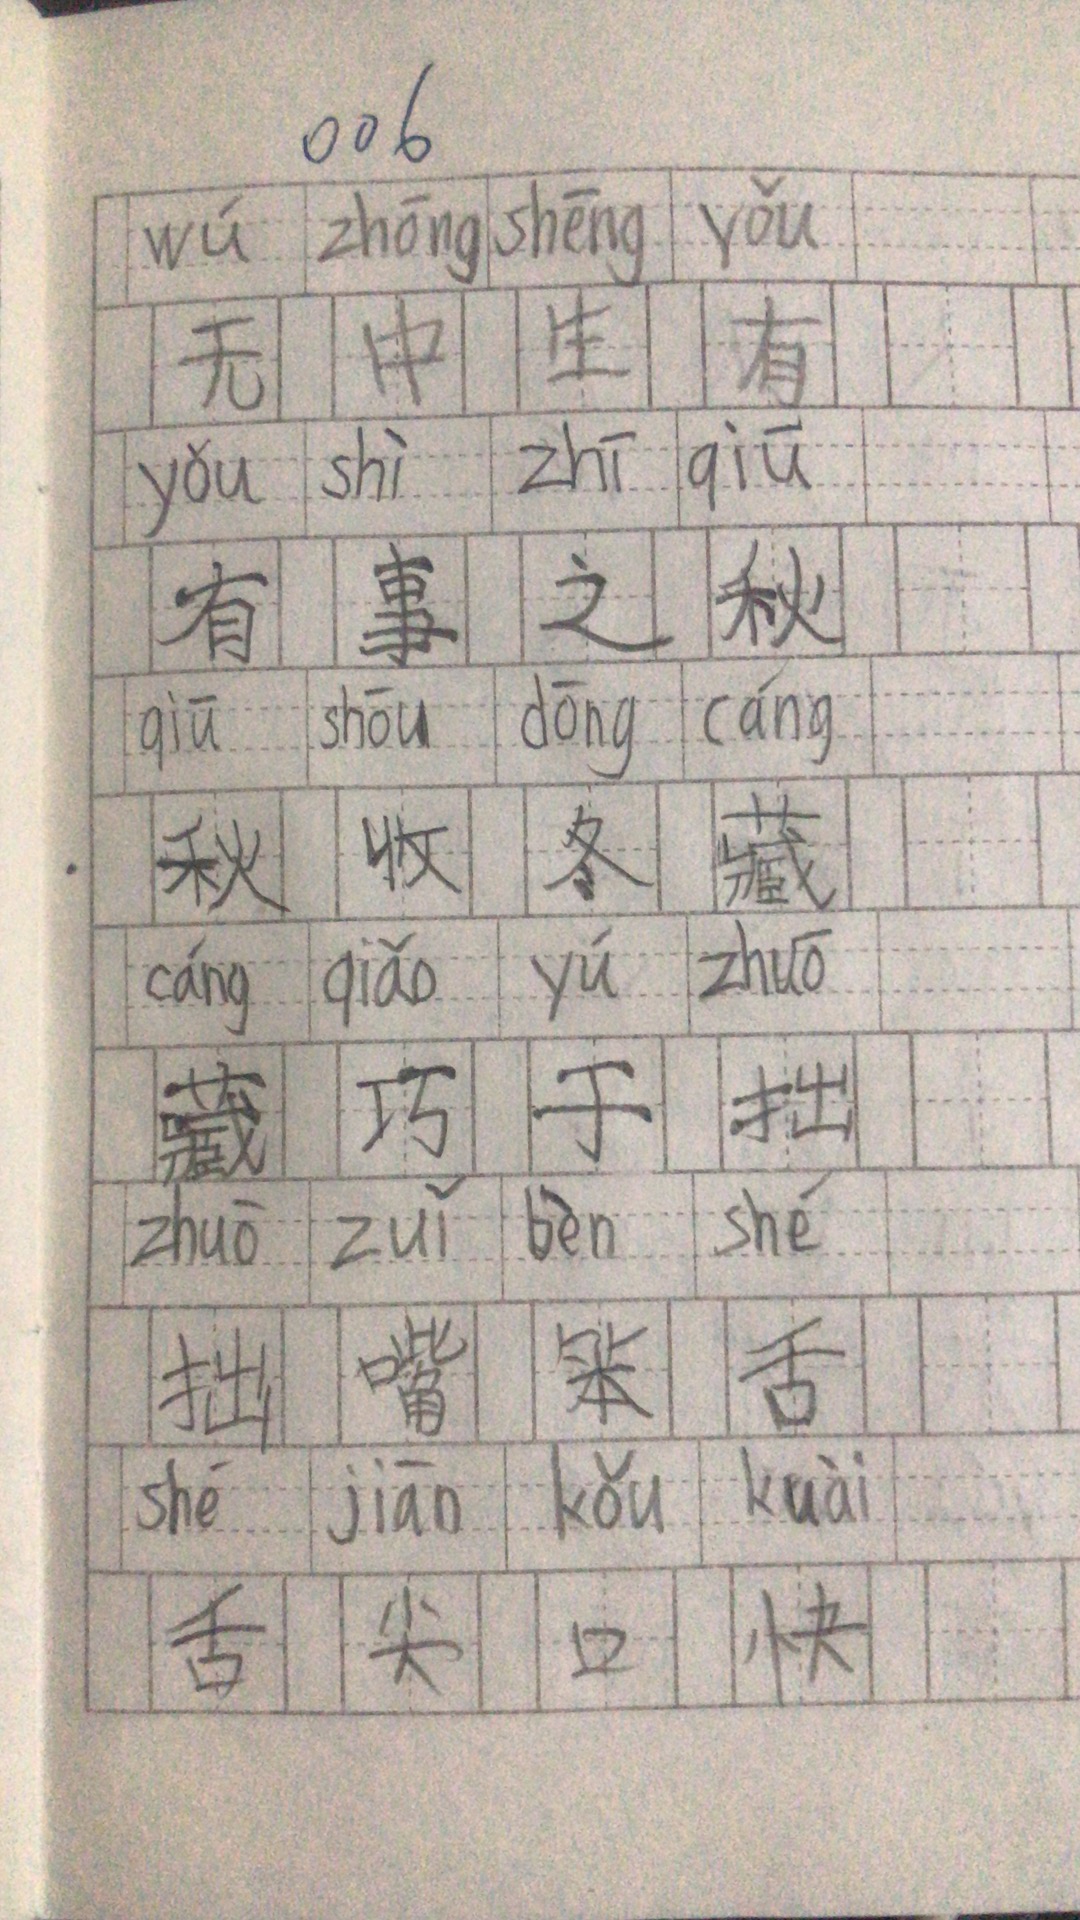 006
wú zhōng shēng yǒu
无中生有
yǒu shì zhī qiū
有事之秋
qiū shōu dōng cáng
秋收冬藏
cáng qiǎo yú zhuō
藏巧于拙
zhuō zuǐ bèn shé
拙嘴笨舌
shé jiān kǒu kuài
舌尖口快